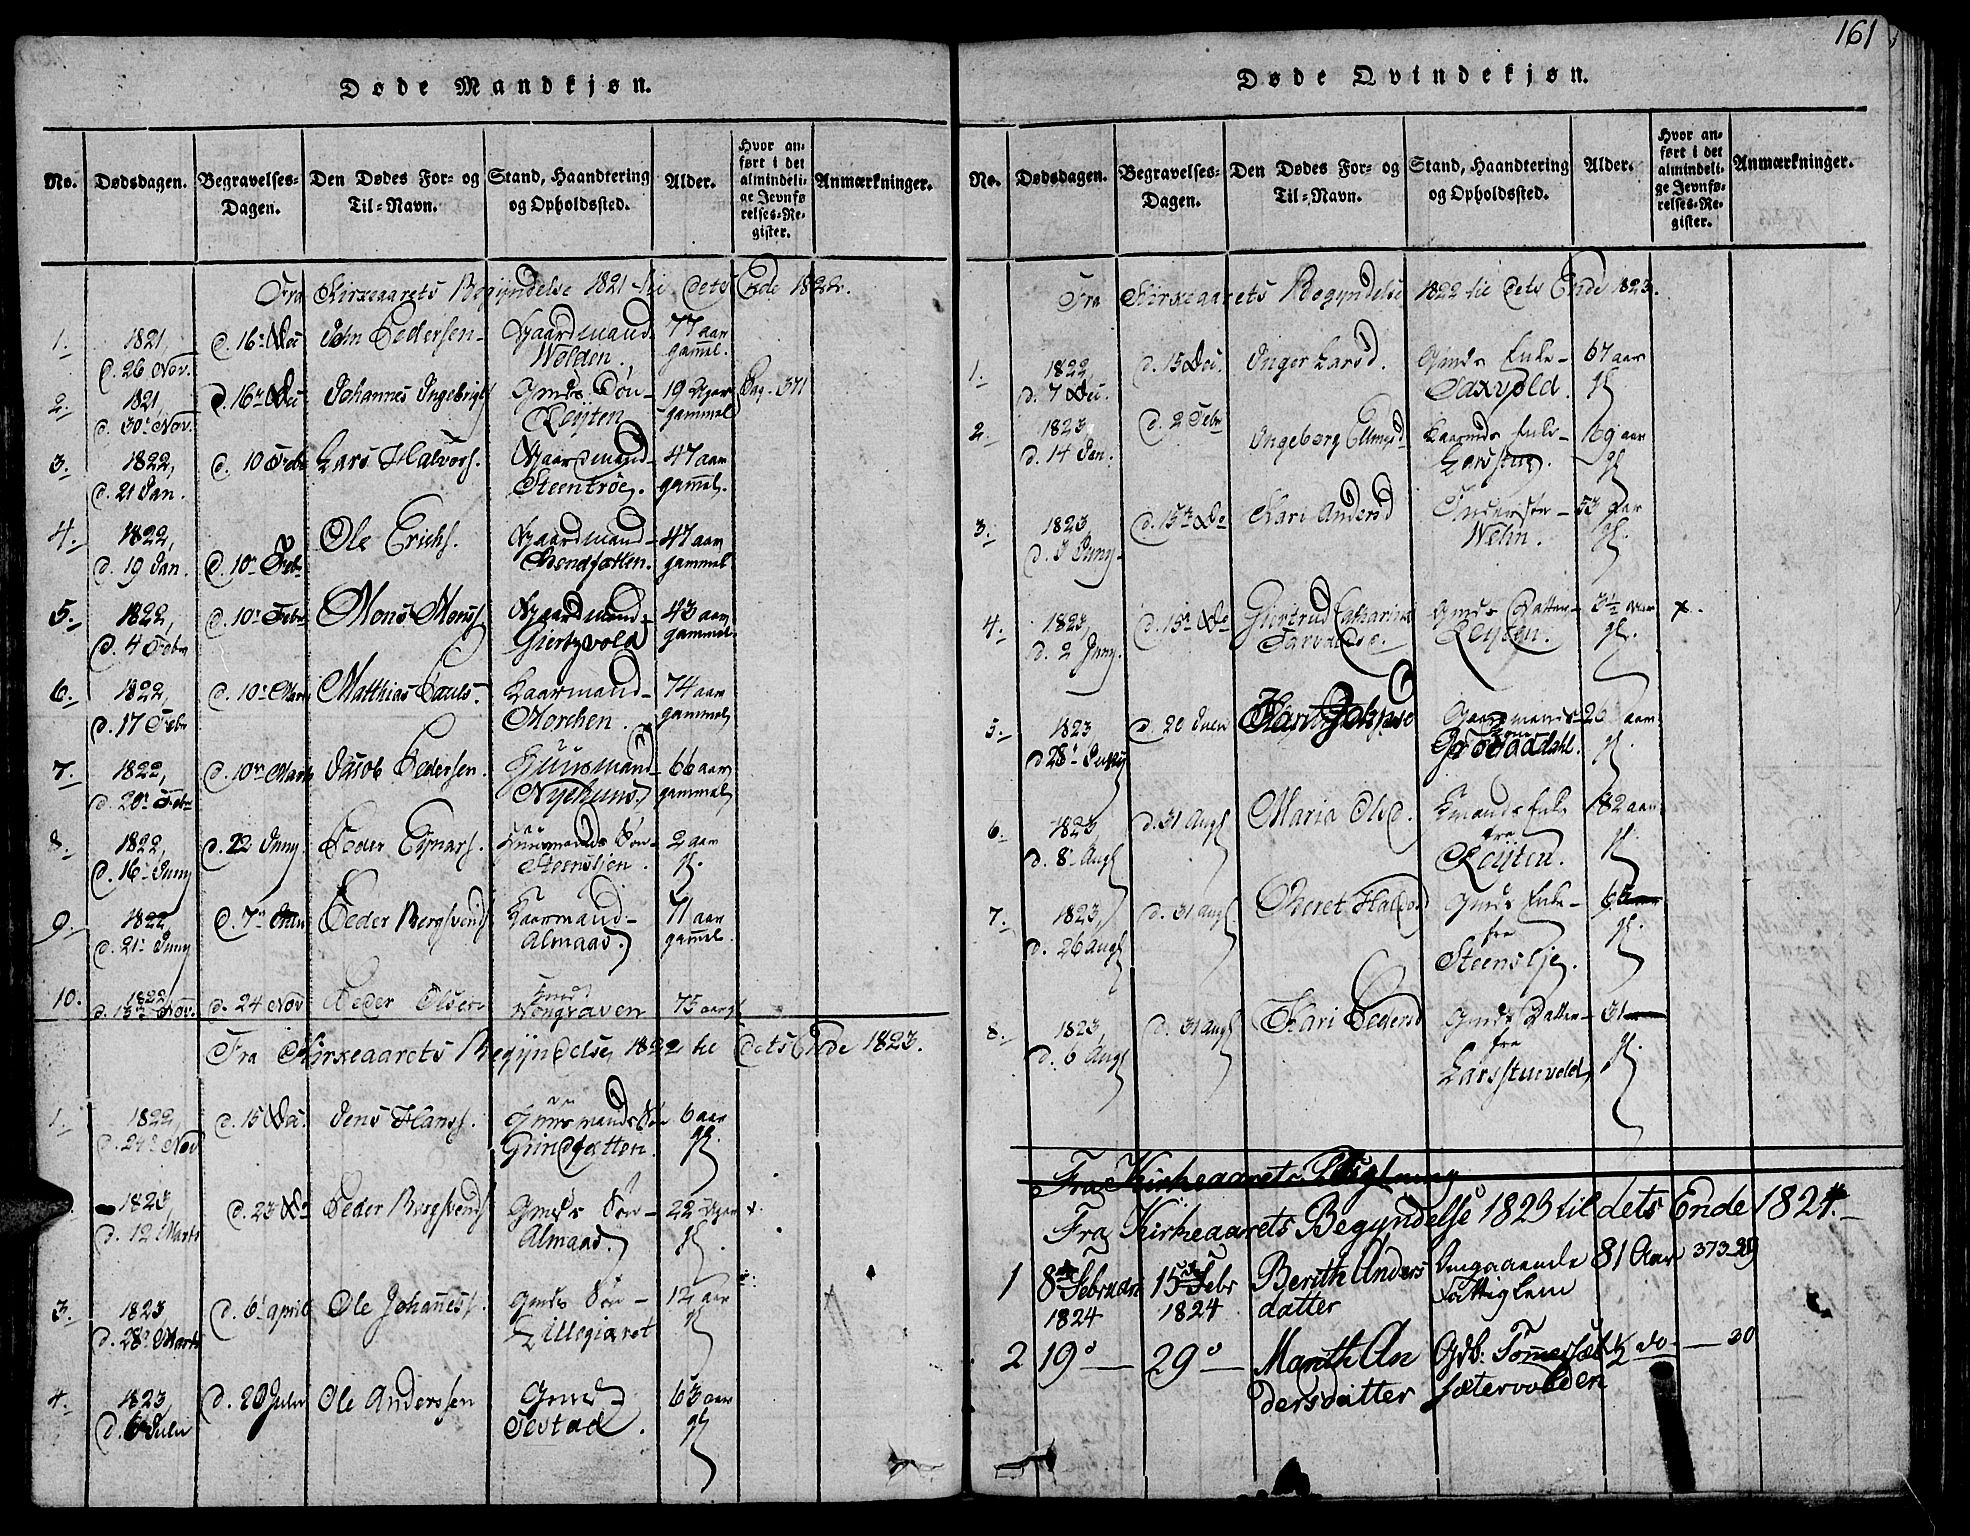 161
Døde Mandkjøn.
No. Dødsdagen. Begravelses-Dagen. Den Dødes For- og Til-Navn. Stand, Haandtering og Opholdssted. Alder. Hvor anført i det almindelige Jevnførelses-Register. Anmærkninger.
Fra Kirkeaarets Begyndelse 1821 til dets Ende 1822.
1. 1821, d. 26 Nov. d. 16 Dec John Pedersen Gaardmand Wolden. 77 aar gammel.
2. 1821, d. 30 Nov. d. 16 Dec Johannes Ingebrigts Gmds Søn Røyten 19 Aar gammel Pag. 371
3. 1822, d. 21 Jan. d. 10 Febr Lars Halvors. Gaardmand Steentrøe. 47 aar gammel.
4. 1822, d. 19 Jan. d. 10 Febr Ole Erichs. Gaardmand 47 aar gammel
5. 1822, d. 4 Febr d. 10 Febr Mons Mons Gaardmand Giertzvold 43 aar gammel
6. 1822, d. 17 Febr d. 10 Marts Matthias Pauls. Kaarmand Morchen. 74 aar gammel
7. 1822, d. 20 Febr d. 10 Marts Jacob Pedersen. Huusmand Nyehuus 66 aar gammel
8. 1822, d. 16 Juny d. 22 Juny Peder Ejnars. Huusmands Søn Steenslien. 2 aar gl.
9. 1822, d. 21 Juny d. 7 Peder Bergsvends Kaarmand Almaas. 71 aar gammel.
10. 1822 d. 15 Nov. d. 24 Nov Peder Olsen Nongraven 75 aar
Fra Kirkeaarets Begyndelse 1822 til dets Ende 1823.
1. 1822, d. 24 Nov d. 15 Dec. Jens Hans. Huusmands Søn Grindfatten. 6 aar gl.
1823, d. 12 Marts d. 23 Do Peder Bergsvends Gmds Søn Almaas. 22 Aar gl. x.
3. 1823 d. 28 Marts d. 6 april Ole Johannes. Gmds Søn Lillegiæret 12 aar gl
4. 1823, d. 6 Julii d. 20 Julii Ole Anderssen Gmd Sevtad. 63 aar gl
Døde Qvindekjøn.
No. Dødsdagen. Begravelses-Dagen. Den Dødes For- og Til-Navn. Stand, Haandtering og Opholdssted. Alder. Hvor anført i det almindelige Jevnførelses-Register. Anmærkninger.
Fra Kirkeaarets Begyndelse 1822 til dets Ende 1823.
1. 1822, d. 7 Dec. d. 15 Dec. Inger Larsd Gmds Enke Saxvold. 67 aar gl
2. 1823, d. 14 Jan. d. 2 Febr Ingeborg Kaarmds Enke Larsstue. 69 aar gl
3. 1823 d. 1 Juny d. 15 Do Kari Andersd Inderster Welin. 53 aar gl.
4. 1823, d. 2 Juny. d. 15 Do Giertrud Catharina Gmds Datter Røyten. aar gl. x.
5. 1823 d. 20 Julii Gaardmands 26 aar gl.
6. 1823, d. 8 Augs d. 31 Augs Maria Olsd. Kmands Enke fra Røyten. 82 aar gl
7. 1823, d. 26 Augs d. 31 Augs. Beret Halvord Gmds Enke fra Steenslie. 65 gl.
8. 1823, d. 6 Augs d. 31 Augs Kari Pedersd Gmds Datter fra Larsstuevold 31 gl.
Fra Kirkeaarets
Fra Kirkeaarets Begyndelse 1823 til dets Ende 1824.
1 8de Februar 1824 15de Febr 1824 Berith Andersdatter Omgaaende Fattiglem 81 Aar 373-29
2 19° — 29° — Marith Andersdatter Gdb: Sætervolden ½ do — 30